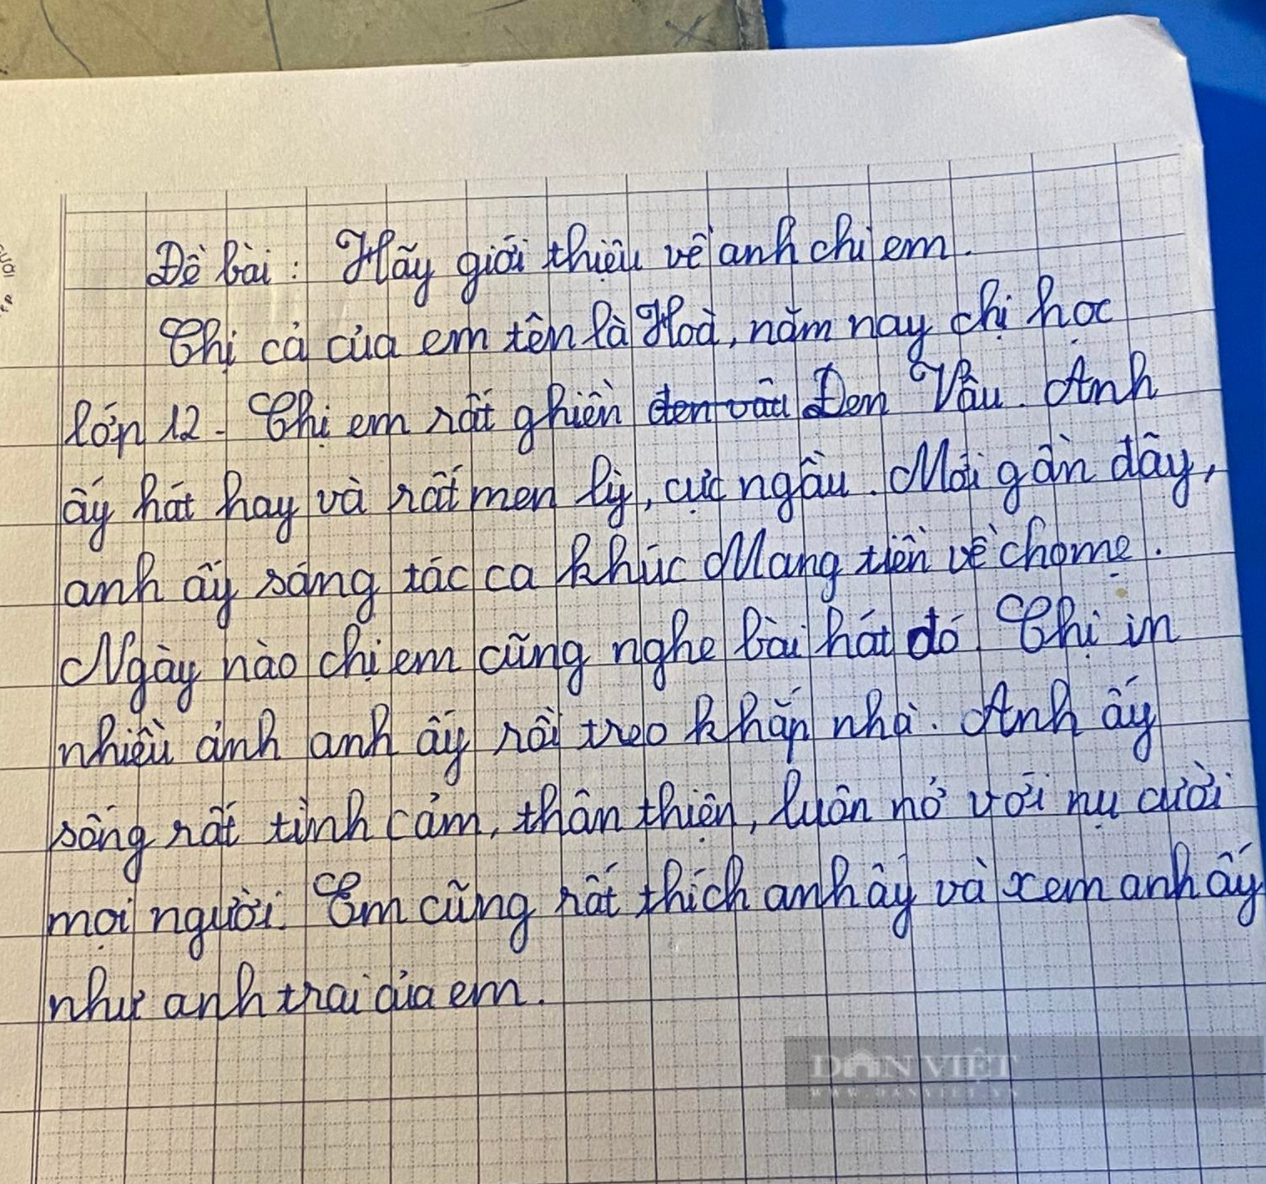 Đề bài: Hãy giới thiệu về anh chị em.
Chị cả của em tên là Hoà, năm nay chị học
lớp 12. Chị em rất ghiền đen vâu Đen Vâu. Anh
ấy hát hay và rất men lỳ, cực ngầu. Mới gần đây,
anh ấy sáng tác ca khúc Mang tiền về cho mẹ.
Ngày nào chị em cũng nghe bài hát đó. Chị in
nhiều ảnh anh ấy rồi treo khắp nhà. Anh ấy
sống rất tình cảm, thân thiện, luôn nở với nụ cười
mọi người. Em cũng rất thích anh ấy và xem anh ấy
như anh trai của em.
DÂN VIỆT
WWW.DANVIET.VN